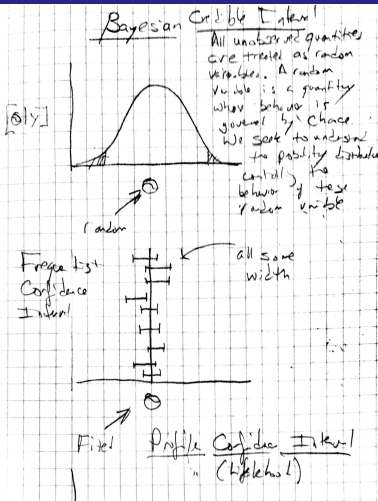 Bayesian Credible Interval
All unobserved quantities
are treated as random
variables. A random
variable is a quantity
whose behavior is
governed by chance.
We seek to understand
the
the
behavior of these
random variable
[θ|y]
θ
random
Frequentist
Confidence
Interval
all same
width
θ
Fixed
Profile Confidence Interval
(Likelihood)